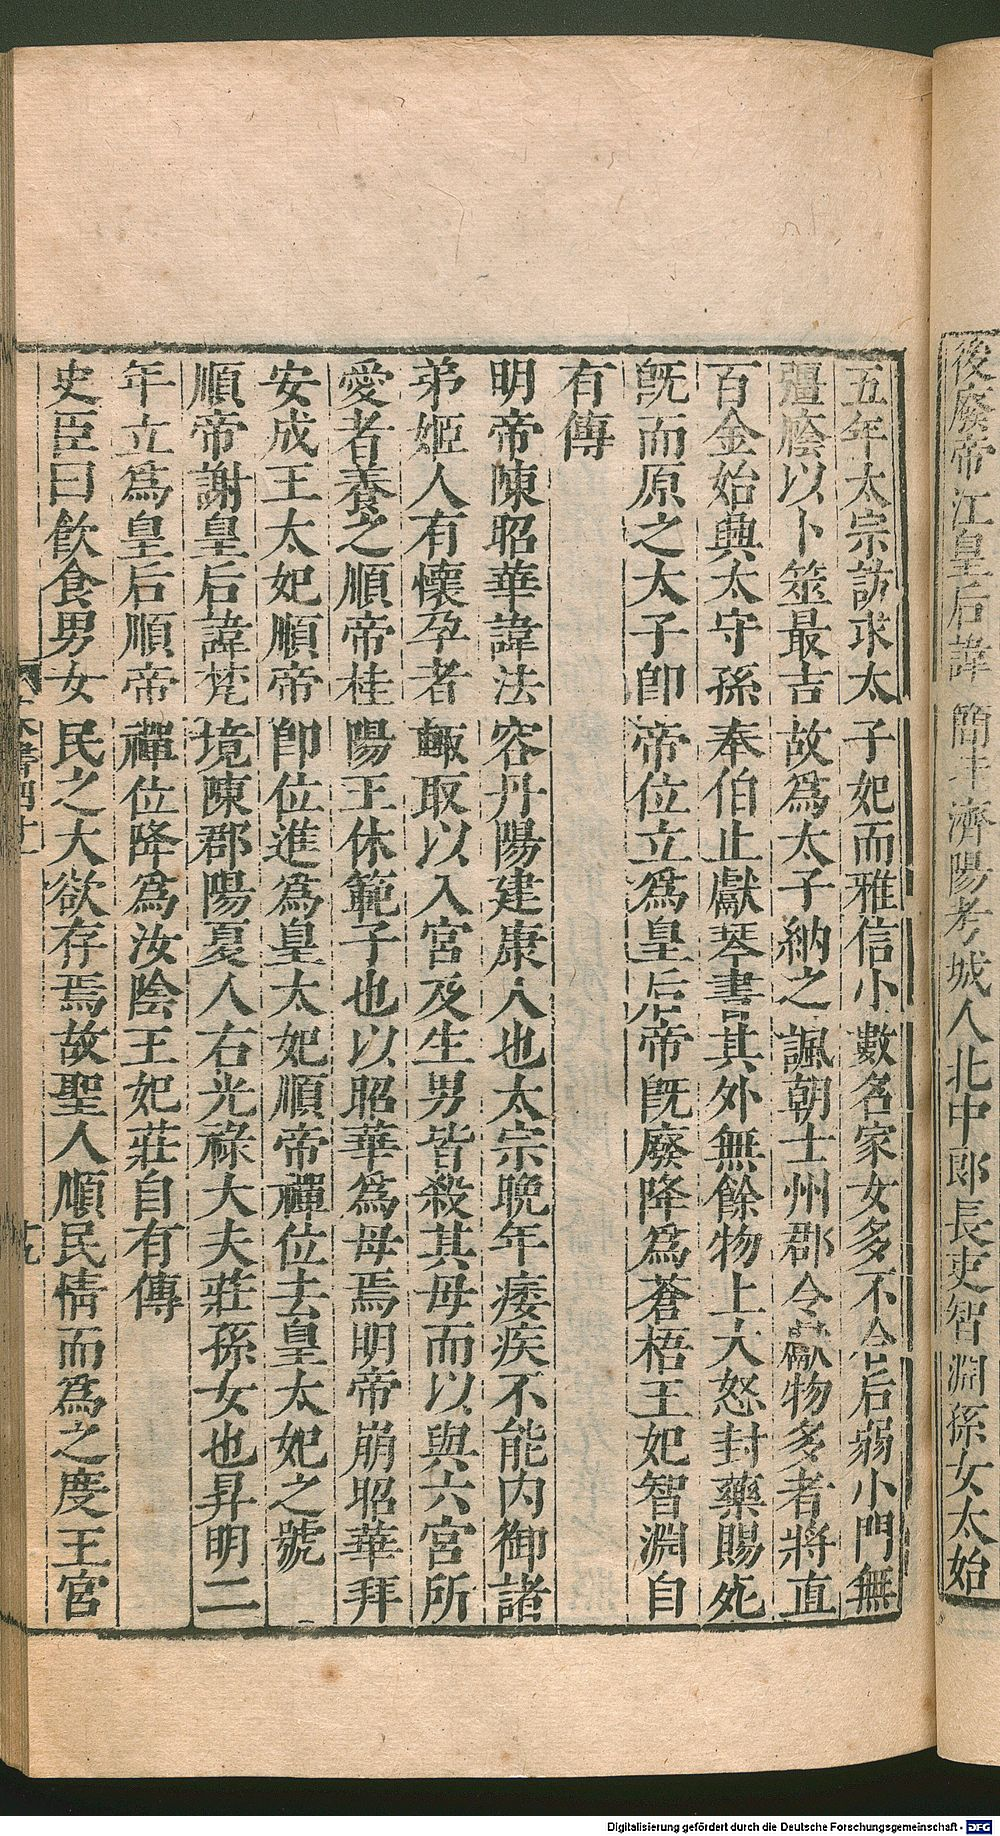 後廢帝江皇后諱簡圭濟陽考城人北中郎長吏智淵孫女太始
五年太宗訪求太子妃而雅信小數名家女多不合后弱小門無
彊廕以卜筮最吉故爲太子納之諷朝士州郡令獻物多者將直
百金始興太守孫奉伯止獻琴書其外無餘物上大怒封藥賜死
旣而原之太子卽帝位立爲皇后帝旣廢降爲蒼梧王妃智淵自
有傳
明帝陳昭華諱法容丹陽建康人也太宗晩年痿疾不能内御諸
弟姬人有懷孕者輙取以入宮及生男皆殺其母而以與六宮所
愛者養之順帝桂陽王休範子也以昭華爲母焉明帝崩昭華拜
安成王太妃順帝卽位進爲皇太妃順帝禪位去皇太妃之號
順帝謝皇后諱梵境陳郡陽夏人右光祿大夫莊孫女也昇明二
年立爲皇后順帝禪位降爲汝陰王妃莊自有傳
史臣曰飮食男女民之大欲存焉故聖人順民情而爲之度王宮
Digitalisierung gefördert durch die Deutsche Forschungsgemeinschaft - DFG